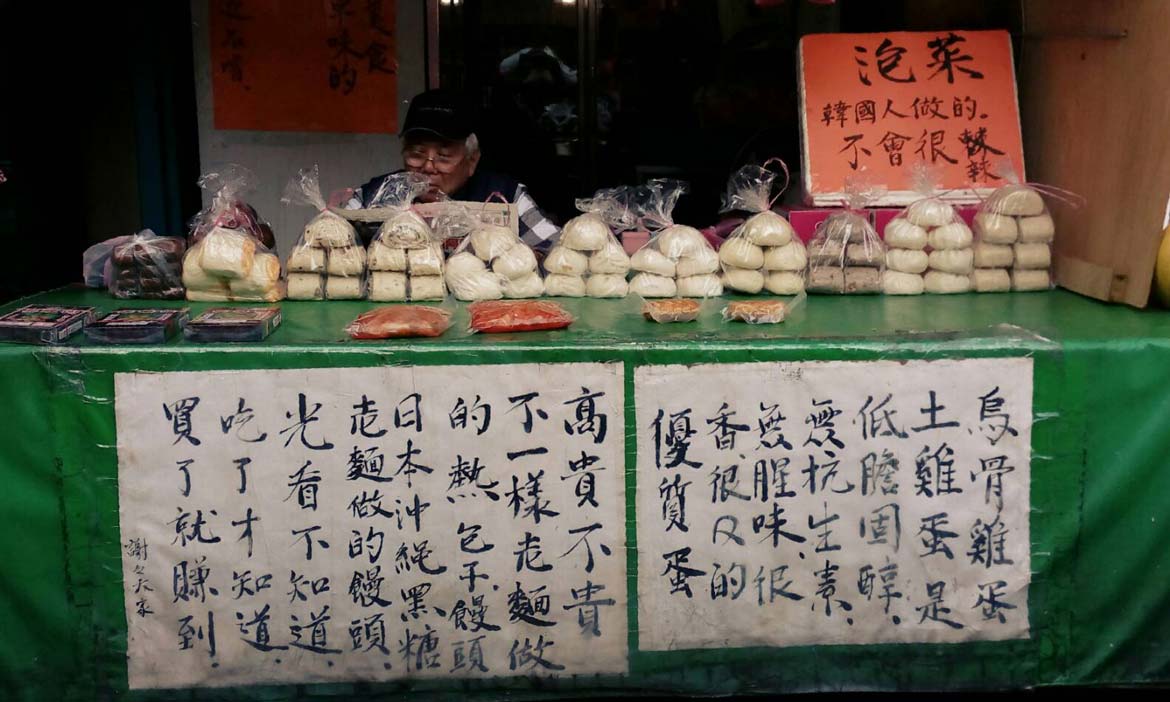 食
味的
泡菜
韓國人做的。
不會很辣
烏骨雞蛋
土雞蛋是
低膽固醇.
無抗生素.
無腥味.很
香.很Q的
優質蛋
高貴不貴
不一樣老麵做
的熱包子.饅頭
日本沖繩黑糖
老麵做的饅頭.
光看不知道.
吃了才知道.
買了就賺到.
謝々大家